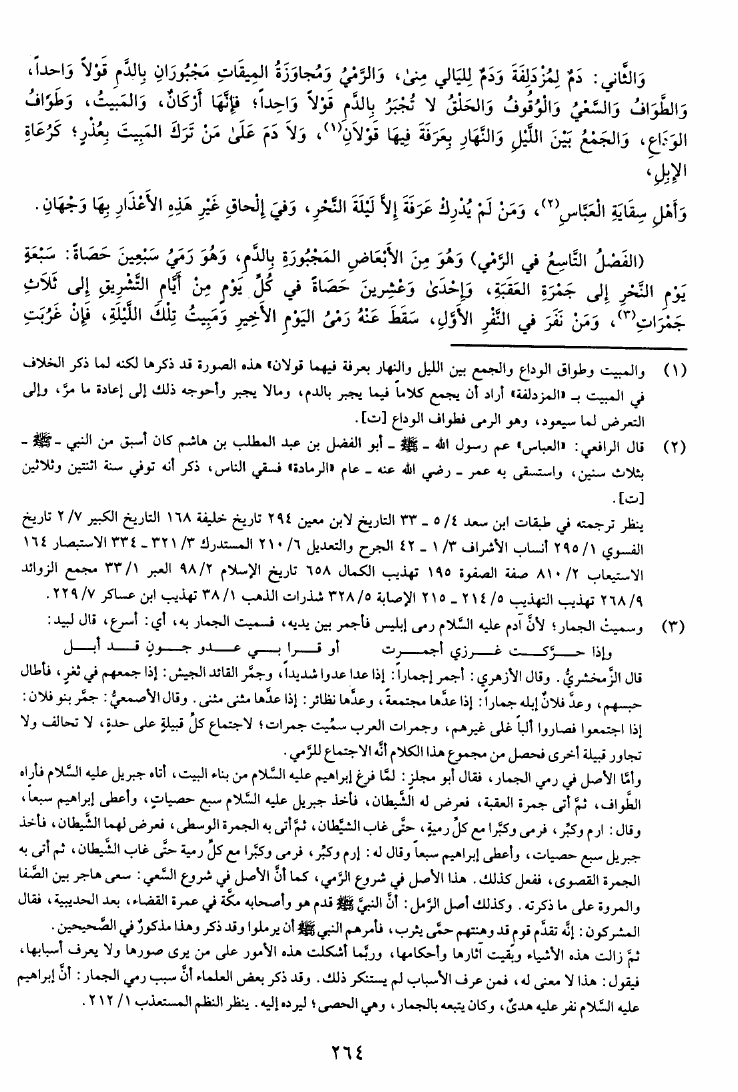 وَالثَّاني: دَمٌ لِمُزْدَلِفَةَ وَدَمٌ لِليَالي مِنىٰ، وَالرَّمْيُ وَمُجاوَزَةُ المِيقَاتِ مَجْبُورَانِ بِالدَّمِ قَوْلاً وَاحداً،
وَالطَّوَافُ وَالسَّعْيُ وَالْوُقُوفُ وَالحَلْقُ لا تُجْبَرُ بِالدَّمِ قَوْلاً وَاحِداً؛ فَإِنَّهَا أَرْكَانٌ، وَالمَبِيتُ، وَطَوَافُ
الوَدَاعِ، وَالجَمْعُ بَيْنَ اللَّيْلِ وَالنَّهَارِ بِعَرَفَةَ فِيهَا قَوْلاَنِ(١)، وَلاَ دَمَ عَلَىٰ مَنْ تَرَكَ المَبِيتَ بِعُذْرٍ؛ كَرُعَاةِ
الإِبِلِ،
وَأَهْلِ سِقَايَةِ الْعَبَّاسِ(٢)، وَمَنْ لَمْ يُدْرِكْ عَرَفَةَ إِلاَّ لَيْلَةَ النَّحْرِ، وَفي إِلْحاقِ غَيْرِ هَذِهِ الأَعْذَارِ بِهَا وَجْهَانِ.
(الفَصْلُ التَّاسِعُ في الرَّمْي) وَهُوَ مِنَ الأَبْعَاضِ المَجْبُورَةِ بِالدَّمِ، وَهُوَ رَمْيُ سَبْعِينَ حَصَاةً: سَبْعَةٍ
يَوْمِ النَّحْرِ إِلى جَمْرَةِ العَقَبَةِ، وَإِحْدَىٰ وَعْشِرينَ حَصَاةً في كُلِّ يَوْمٍ مِنْ أَيَّامِ التَّشْرِيقِ إِلى ثَلاَثِ
جَمْرَاتٍ(٣)، وَمَنْ نَفَرَ في النَّفْرِ الأَوَّلِ، سَقَطَ عَنْهُ رَمْيُ اليَوْمِ الأَخِيرِ وَمَبِيتُ تِلْكَ اللَّيْلَةِ، فَإِنْ غَرُبَتِ
(١) والمبيت وطواق الوداع والجمع بين الليل والنهار بعرفة فيهما قولان» هذه الصورة قد ذكرها لكنه لما ذكر الخلاف
في المبيت بـ «المزدلفة» أراد أن يجمع كلاماً فيما يجبر بالدم، ومالا يجبر وأحوجه ذلك إلى إعادة ما مرَّ، وإلى
التعرض لما سيعود، وهو الرمى فطواف الوداع [ت].
(٢) قال الرافعي: «العباس» عم رسول الله ـ ﷺ ـ أبو الفضل بن عبد المطلب بن هاشم كان أسبق من النبي ـ ﷺ ـ
بثلاث سنين، واستسقى به عمر ـ رضي الله عنه ـ عام «الرمادة» فسقي الناس، ذكر أنه توفي سنة اثنتين وثلاثين
[ت].
ينظر ترجمته في طبقات ابن سعد ٤/ ٥ ـ ٣٣ التاريخ لابن معين ٢٩٤ تاريخ خليفة ١٦٨ التاريخ الكبير ٧/ ٢ تاريخ
الفسوي ١/ ٢٩٥ أنساب الأشراف ٣/ ١ ـ ٤٢ الجرح والتعديل ٦/ ٢١٠ المستدرك ٣/ ٣٢١ ـ ٣٣٤ الاستبصار ١٦٤
الاستيعاب ٢/ ٨١٠ صفة الصفوة ١٩٥ تهذيب الكمال ٦٥٨ تاريخ الإسلام ٢/ ٩٨ العبر ١/ ٣٣ مجمع الزوائد
٩/ ٢٦٨ تهذيب التهذيب ٥/ ٢١٤ ـ ٢١٥ الإصابة ٥/ ٣٢٨ شذرات الذهب ١/ ٣٨ تهذيب ابن عساكر ٧/ ٢٢٩.
(٣) وسميتْ الجمار؛ لأنَّ آدم عليه السَّلام رمى إبليس فأجمر بين يديه، فسميت الجمار به، أي: أسرع، قال لبيد:
وإذا حرَّكت غرزي أجمرت أو قرا بي عدو جون قد أبل
قال الزَّمخشريُّ. وقال الأزهري: أجمر إجماراً: إذا عدا عدوا شديداً، وجمَّر القائد الجيش: إذا جمعهم في ثغرٍ، فأطال
حبسهم، وعدَّ فلانٌ إبله جماراً: إذا عدَّها مجتمعةً، وعدَّها نظائر: إذا عدَّها مثنى مثنى. وقال الأصمعيُّ: جمَّر بنو فلان:
إذا اجتمعوا فصاروا ألباً غلى غيرهم، وجمرات العرب سمِّيت جمرات؛ لاجتماع كلِّ قبيلةٍ على حدةٍ، لا تحالف ولا
تجاور قبيلة أخرى فحصل من مجموع هذا الكلام أنَّه الاجتماع للرَّمي.
وأمَّا الأصل في رمي الجمار، فقال أبو مجلزٍ: لمَّا فرغ إبراهيم عليه السَّلام من بناء البيت، أتاه جبريل عليه السَّلام فأراه
الطَّواف، ثمَّ أتى جمرة العقبة، فعرض له الشَّيطان، فأخذ جبريل عليه السَّلام سبع حصياتٍ، وأعطى إبراهيم سبعاً،
وقال: ارم وكبِّر، فرمى وكبَّرا مع كلِّ رميةٍ، حتَّى غاب الشيَّطان، ثمَّ أتى به الجمرة الوسطى، فعرض لهما الشَّيطان، فأخذ
جبريل سبع حصيات، وأعطى إبراهيم سبعاً وقال له: إرم وكبِّر، فرمى وكبَّرا مع كلِّ رمية حتَّى غاب الشَّيطان، ثم أتى به
الجمرة القصوى، ففعل كذلك. هذا الأصل في شروع الرَّمي، كما أنَّ الأصل في شروع السَّعي: سعى هاجر بين الصَّفا
والمروة على ما ذكرته. وكذلك أصل الرَّمل: أنَّ النبيَّ ﷺ قدم هو وأصحابه مكَّة في عمرة القضاء، بعد الحديبية، فقال
المشركون: إنَّه تقدَّم قوم قد وهنتهم حمَّى يثرب، فأمرهم النبي ﷺ أن يرملوا وقد ذكر وهذا مذكورٌ في الصَّحيحين.
ثمَّ زالت هذه الأشياء وبقيت آثارها وأحكامها، وربَّما أشكلت هذه الأمور على من يرى صورها ولا يعرف أسبابها،
فيقول: هذا لا معنى له، فمن عرف الأسباب لم يستنكر ذلك. وقد ذكر بعض العلماء أنَّ سبب رمي الجمار: أنَّ إبراهيم
عليه السَّلام نفر عليه هدىٌ، وكان يتبعه بالجمار، وهي الحصى؛ ليرده إليه. ينظر النظم المستعذب ١/ ٢١٢.
٢٦٤